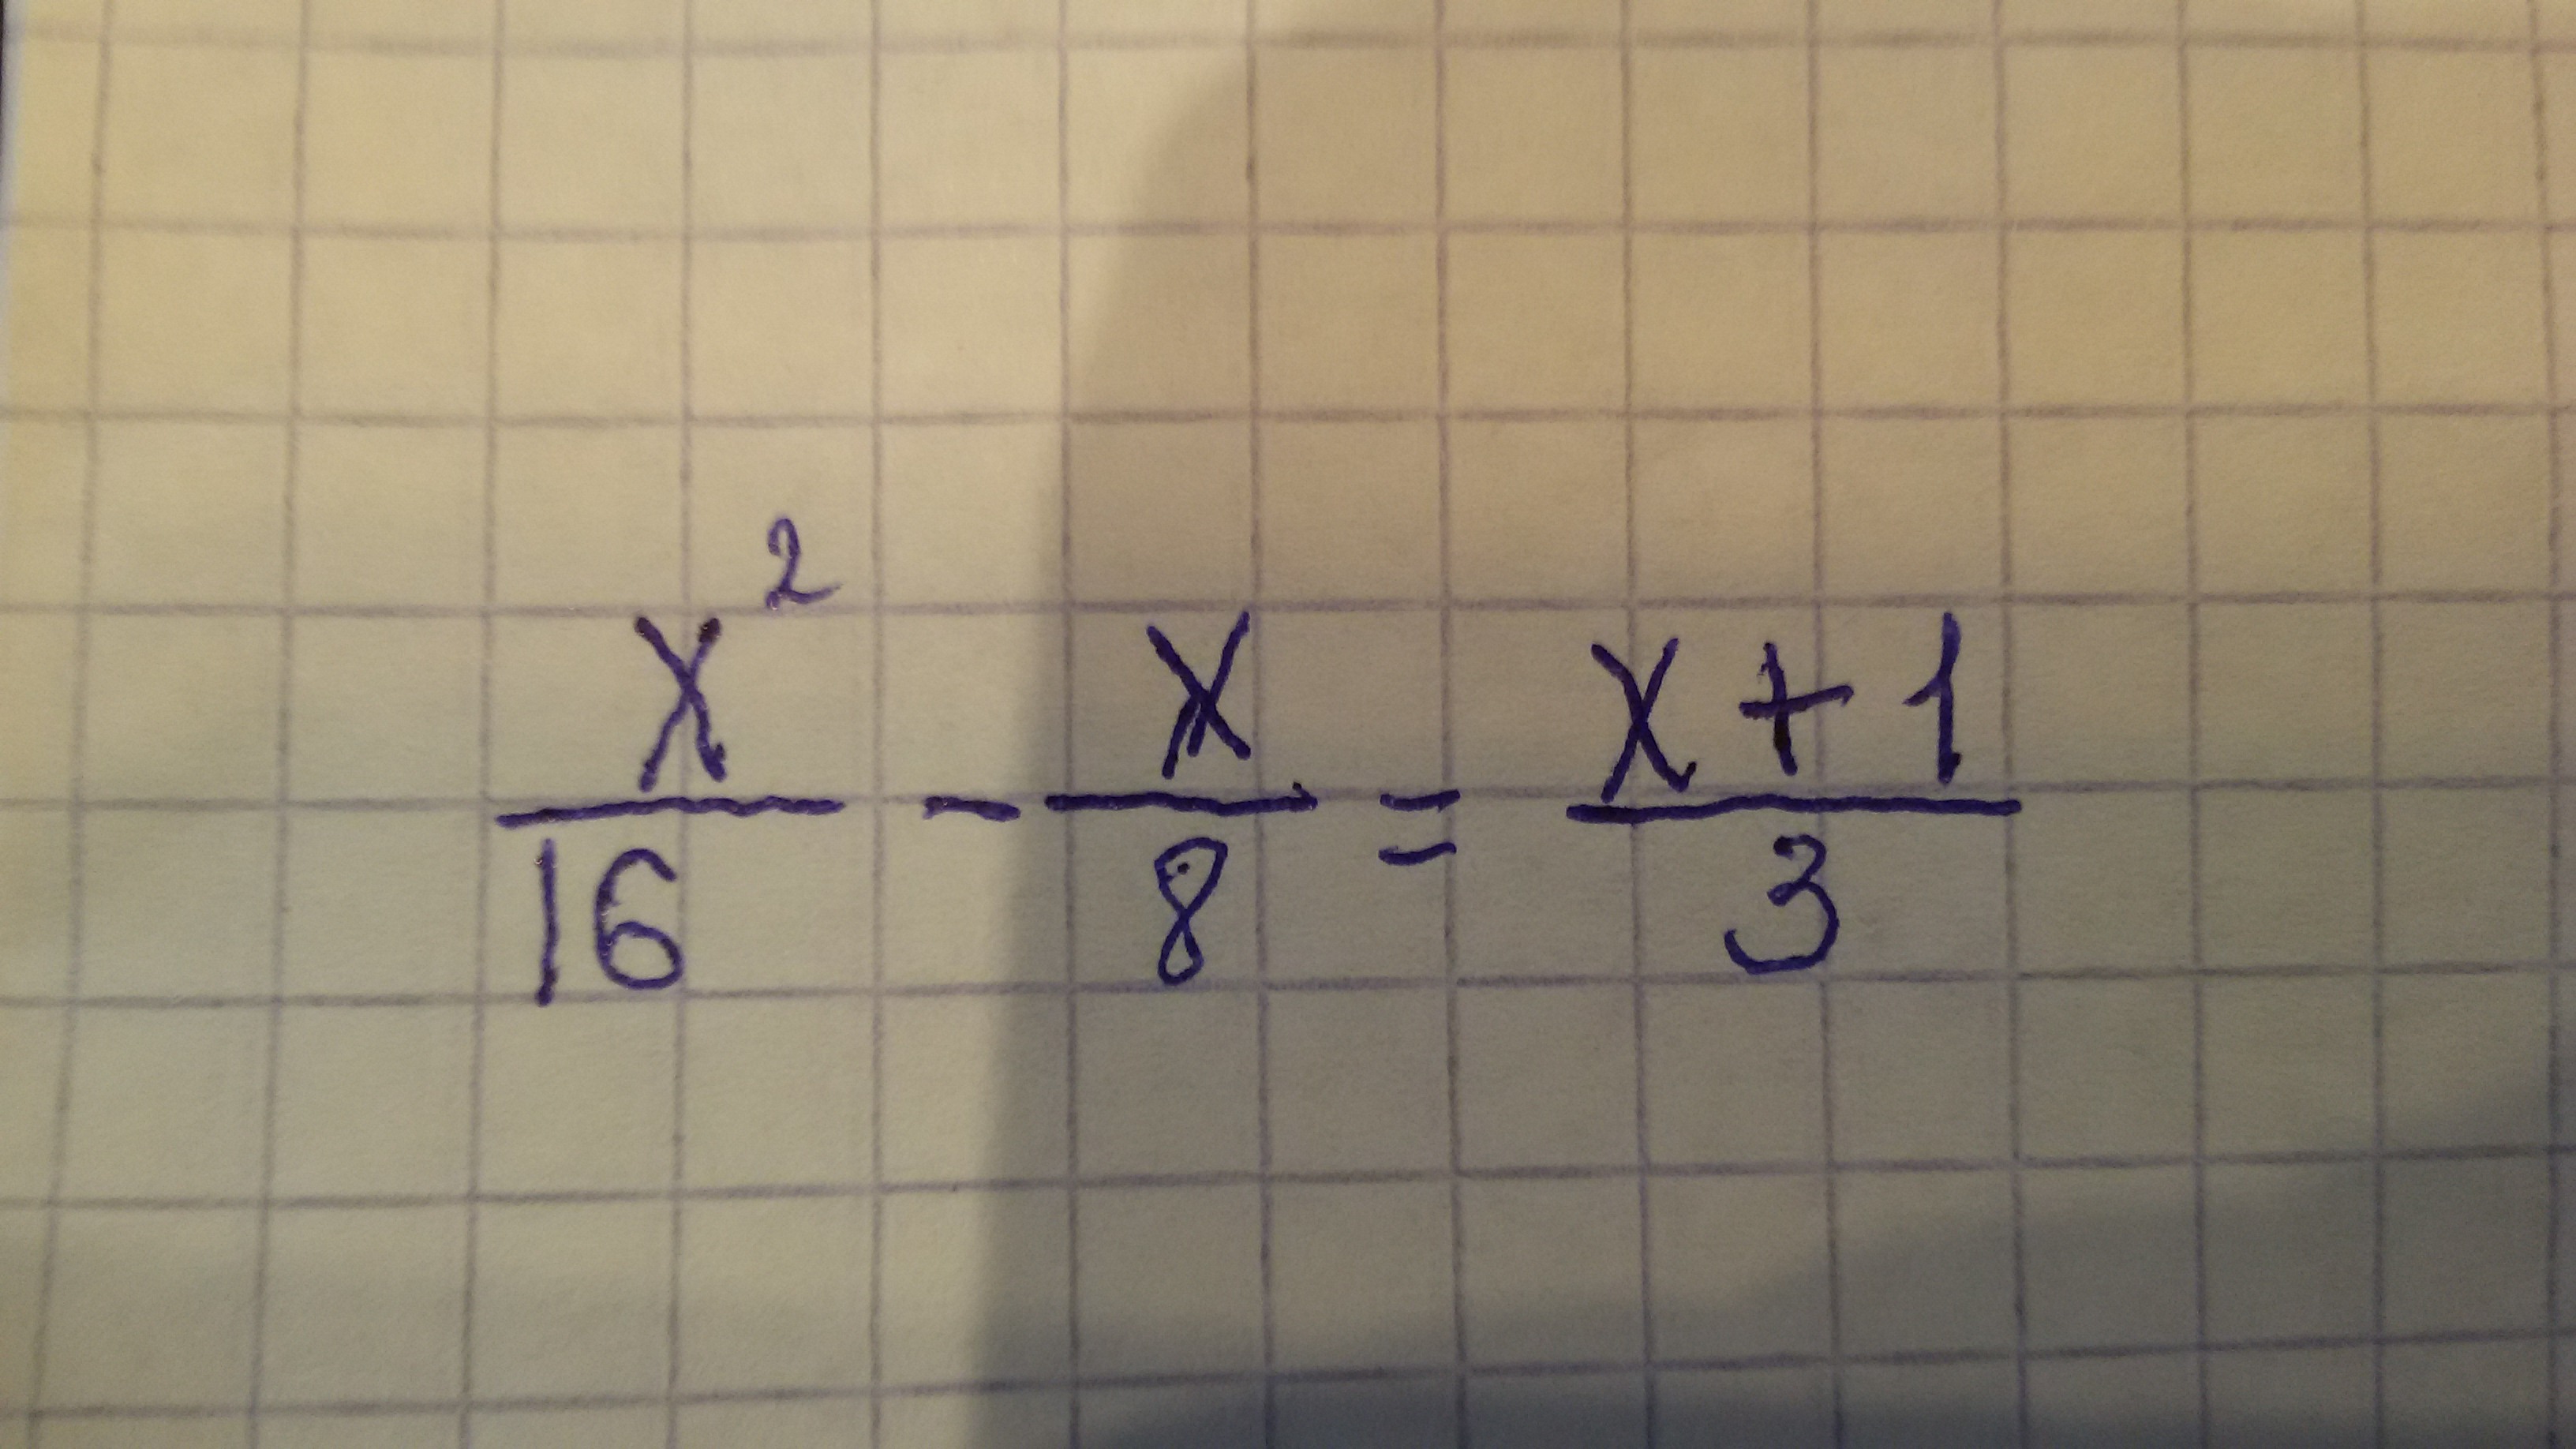 x²/16 - x/8 = x+1/3